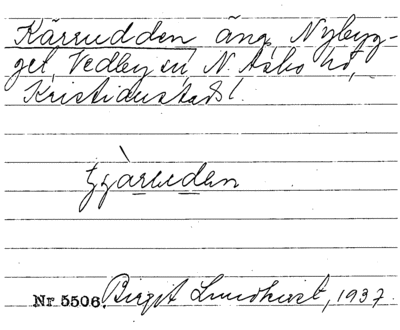 Kärrudden äng, Nybyg-
get, Vedby sn N. Åsbo hd,
Kristianstads l.
tjàrruden
Nr 5506. Birgit Lundkvist, 1937.